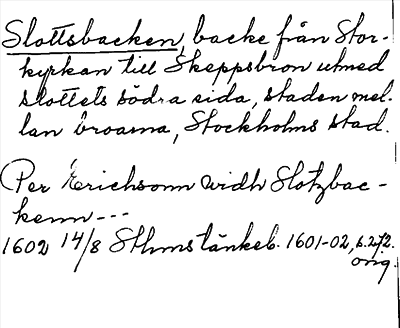 Slottsbacken, backe från Stor-
kyrkan till Skeppsbron utmed
slottets södra sida, staden mel-
lan broarna, Stockholms stad.
Per Erichsonn widh Slotzbac-
kenn ---
1602 14/8 Sthms tänkeb. 1601-02, s. 272.
orig.